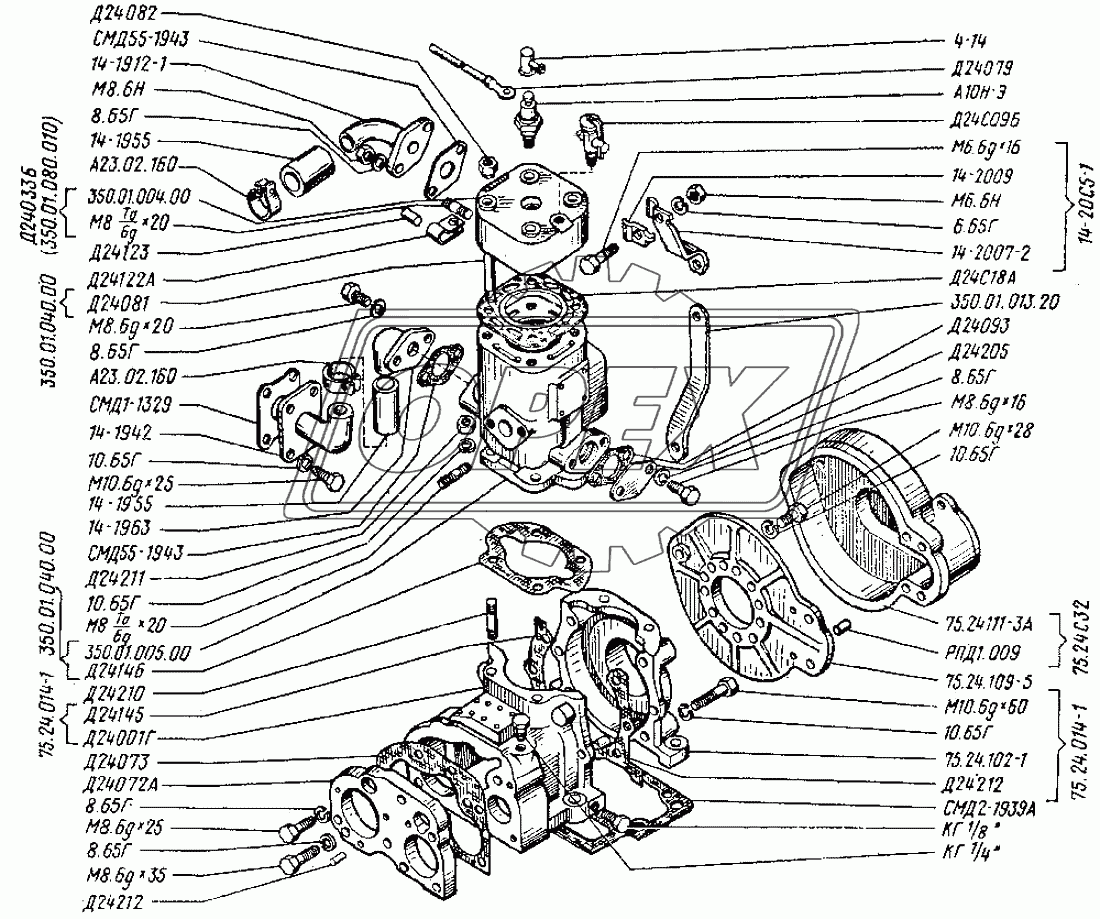 Д24082
СМД55-1943
14-1912-1
М8.6Н
8.65Г
14-1955
А23.02.160
350.01.004.00
М8 Та/6g ×20
Д24033Б
(350.01.080.010)
Д24123
Д24122А
Д24081
350.01.040.00
М8.6g×20
8.65Г
А23.02.160
СМД1-1329
14-1942
10.65Г
М10.6g×25
14-1955
14-1963
СМД55-1943
Д24211
10.65Г
М8 Та/6g ×20
350.01.005.00
350.01.040.00
Д24146
Д24210
Д24145
Д24001Г
75.24.014-1
Д24073
Д24072А
8.65Г
М8.6g×25
8.65Г
М8.6g×35
Д24212
4-14
Д24079
А10Н-Э
Д24С09Б
М6.6g×16
14-2009
М6.6Н
6.65Г
14-2007-2
14-20С5-1
Д24С18А
350.01.013.20
Д24093
Д24205
8.65Г
М8.6g×16
М10.6g×28
10.65Г
75.24111-3А
РПД1.009
75.24С32
75.24.109-5
М10.6g×60
10.65Г
75.24.102-1
Д24212
75.24.014-1
СМД2-1939А
КГ 1/8"
КГ 1/4"
ОРЕХ